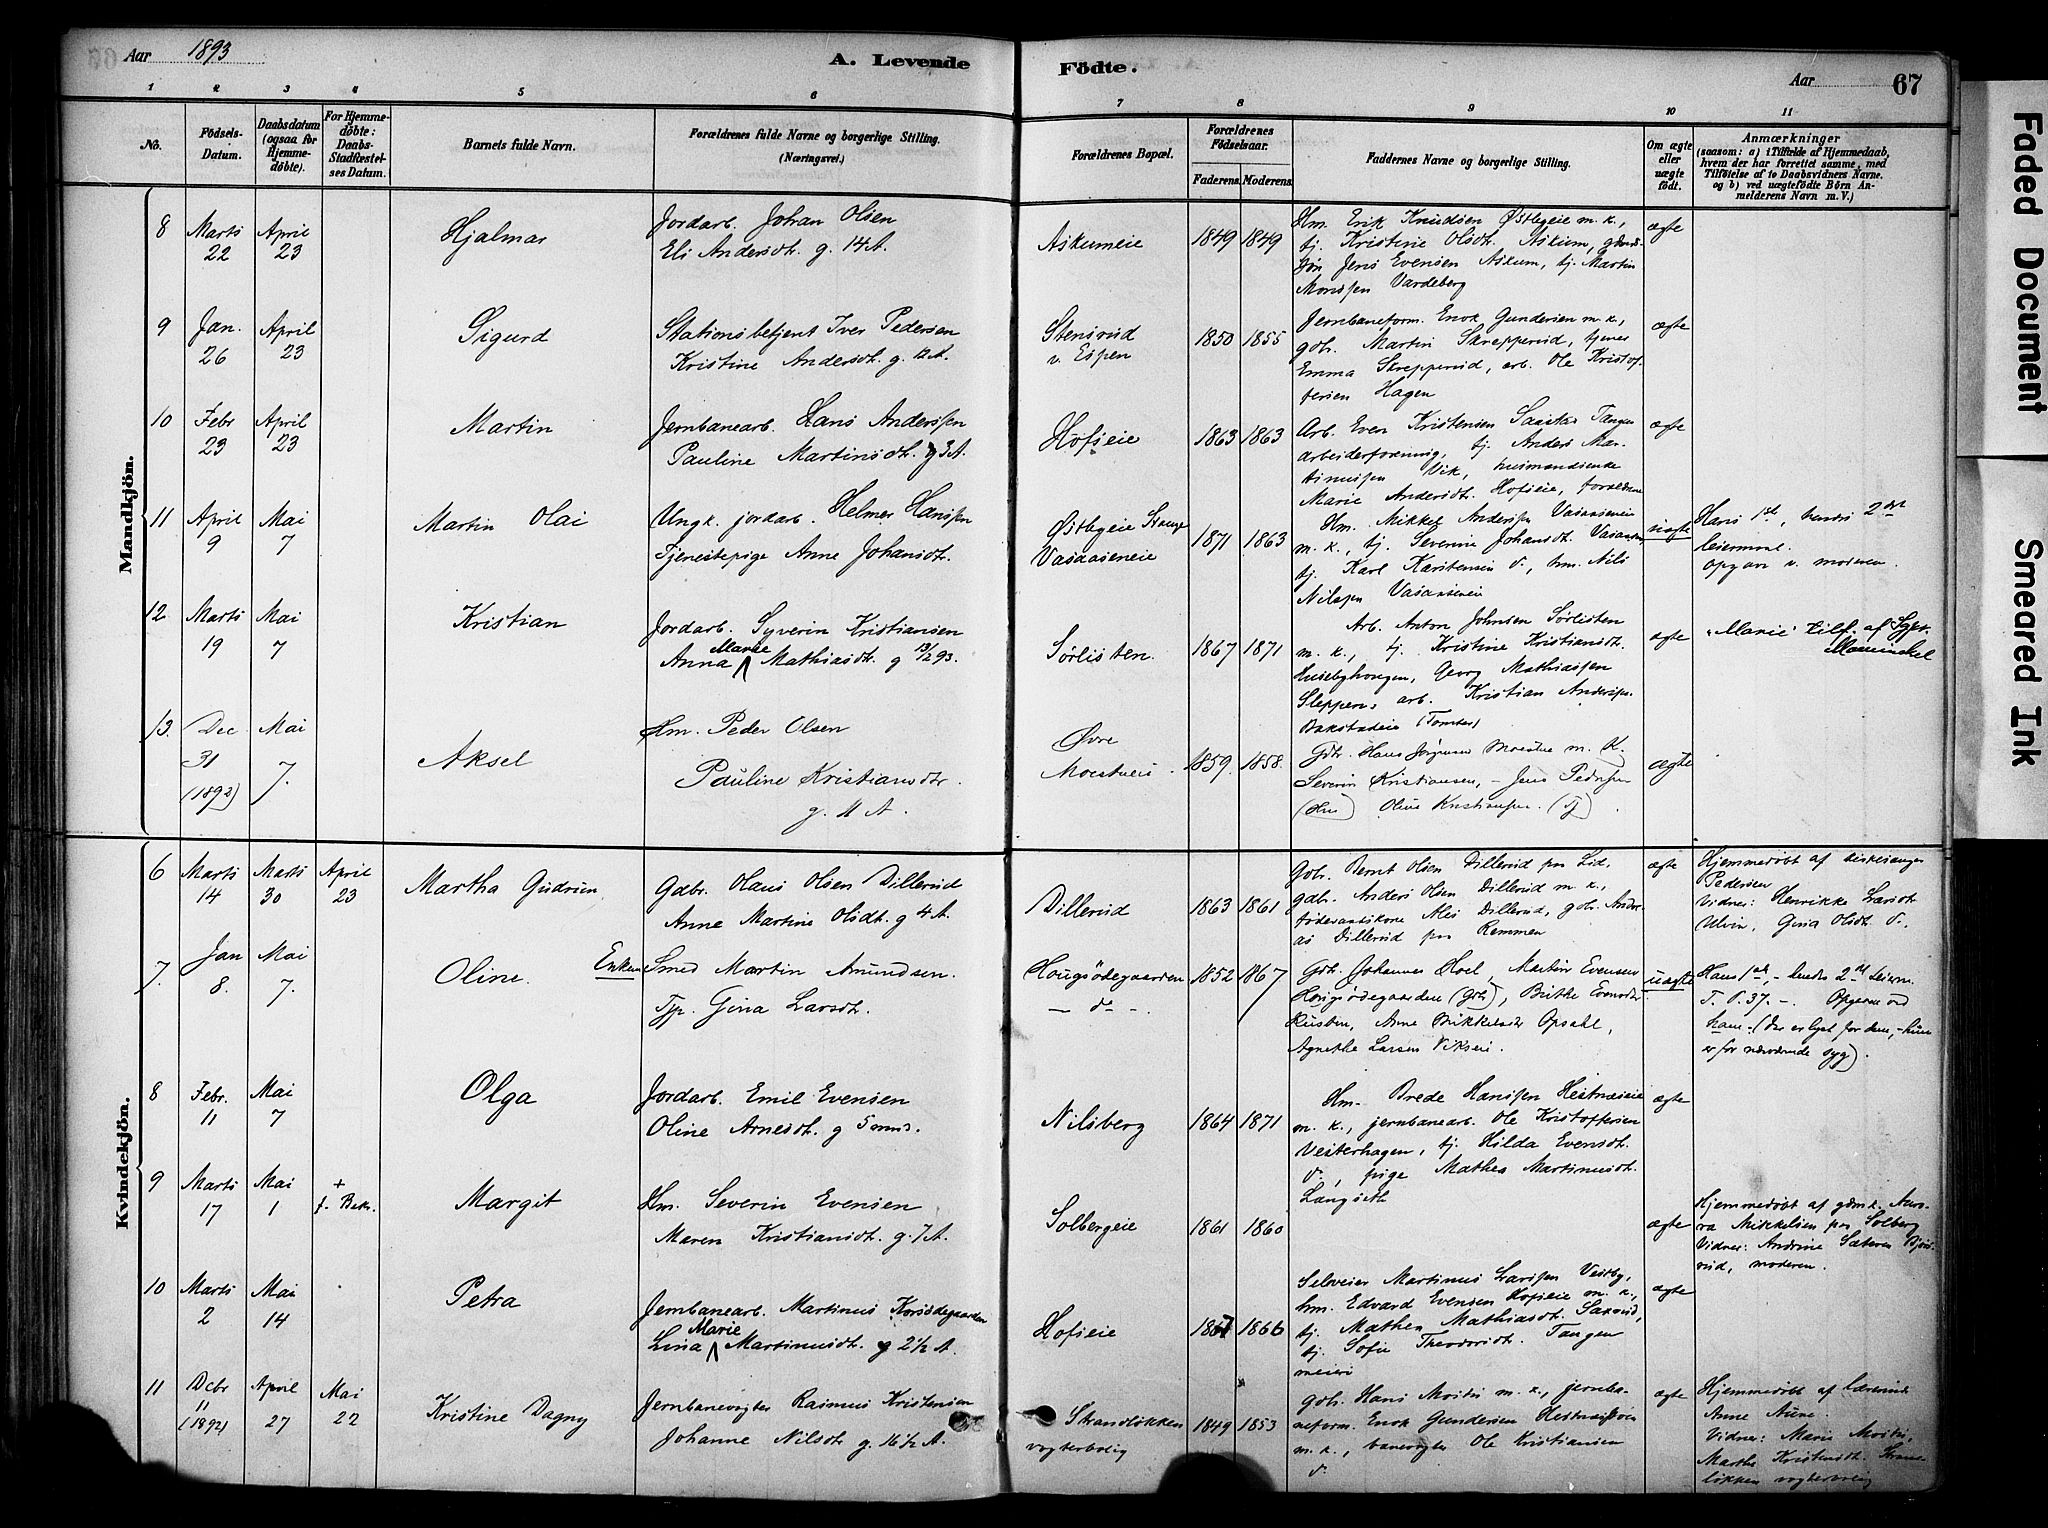 Aar 1893
A. Levende Födte.
Aar 67
1 2 3 4 5 6 7 8 9 10 11
No.
Födsels-
Datum.
Daabsdatum
(ogsaa for
Hjemme-
döbte).
For Hjemme-
döbte:
Daabs-
Stadfæstel-
ses Datum.
Barnets fulde Navn.
Forældrenes fulde Navne og borgerlige Stilling.
(Næringsvei.)
Forældrenes Bopæl.
Forældrenes
Födselsaar.
Faderens. Moderens.
Faddernes Navne og borgerlige Stilling.
Om ægte
eller
uægte
født.
Anmærkninger
(saasom: a) i Tilfælde af Hjemmedaab,
hvem der har forrettet samme, med
Tilföielse af to Daabsvidners Navne.
og b) ved uægtefödte Börn An-
melderens Navn m. V.)
Mandkjön.
8 Marts 22 April 23
Hjalmar
Jordarb. Johan Olsen
Eli Andersdt. g. 14 A.
Askumeie
1849 1849
Hm. Erik Knudsen Østbyeie m. k.,
tj. Kristine Olsdt. Askum,
Jens Evensen Askum, tj. Martin
Monssen Vardeberg
ægte
9 Jan. 26 April 23
Sigurd
Stationsbetjent Iver Pedersen
Kristine Andersdt. g. 12 A.
Stensrud
v. Espen
1850 1855
Jernbaneform. Enok Gundersen m. k.,
gbr. Martin Skrepperud, tjenes
Emma Skrepperud, arb. Ole Kristof-
fersen Hagen
ægte
10 Febr 23 April 23
Martin
Jernbanearb. Hans Anderssen
Pauline Martinsdt. g 3 A.
Hofseie
1863 1863
Arb. Even Kristensen Tangen
arbeiderforening, tj. Anders Mar-
tinussen Vik, husmandsenke
Marie Andersdt. Hofseie, forældrene
ægte
11 April 9 Mai 7
Martin Olai
Ungk. jordarb. Helmer Hanssen
Tjenestepige Anne Johansdt.
Østbyeie Stange
Vasaaseneie
1871 1863
Hm. Mikkel Anderssen Vasaaseneie
m. k., tj. Severine Johansdt. Vasaasen,
tj. Karl Karstensen d., hm. Nils
Nilssen Vasaaseneie
uægte
Hans 1ste, hendes 2det
leiermaal.
opgave v. moderen.
12. Marts 19 Mai 7
Kristian
Jordarb. Syverin Kristiansen
Anna Marie Mathiasdt. g 13/2 93.
Sørlisten.
1867 1871
Arb. Anton Johnsen Sørlisten
m. k., tj. Kristine Kristiansdt.
Husebyhongen, Georg Mathiassen
Sleppen, arb. Kristian Anderssen
Bakstadeie (Tomter)
ægte
"Marie" tilf. af
13. Dec 31 (1892) Mai 7.
Aksel
Hm. Peder Olsen
Pauline Kristiansdtr
g. 11 A.
Øvre
Moestueie
1859. 1858.
Gdr. Hans Jørgensen Moestue m. K.
Severin Kristiansen, – Jens Pedersen
(Hm) Oline Kristiansen. (Tj)
ægte
Kvindekjön.
6 Marts 14 Marts 30 April 23
Martha Gudrun
Gdbr. Olaus Olsen Dillerud
Anne Martine Olsdt. g 4 A.
Dillerud
1863 1861
Gbr. Bernt Olsen Dillerud paa Lid,
gdbr. Anders Olsen Dillerud m. k.,
føderaadskone Dillerud, gbr. Andre-
as Dillerud paa Remmen
ægte
Hjemmedøbt af kirkesanger
Pedersen
Vidner: Henrikke Larsdt.
Ulvin, Gina Olsdt. d.
7. Jan 8. Mai 7.
Oline.
Enkem. Smed Martin Amundsen.
Tjp. Gina Larsdt.
Hougsødegaarden
– do –.
1852 1867
Gdr. Johannes Hoel, Martin Evensen
Hougsødegaarden (Gdr), Birthe Evensdr
Rusten, Anne Mikkelsdr Opsahl,
Agnethe Larsen Vikseie.
uægte
Hans 1ste, – hendes 2det Leierm.
T. P. 37. –. Opgivne ved
ham – (Der er lyst for dem, – hun
er for nærværende syg).
8 Febr. 11 Mai 7
Olga
Jordarb. Emil Evensen
Oline Arnesdt. g 5 mnd.
Nilsberg
1864 1871
Hm. Brede Hanssen Hestnæseie
m. k., jernbanearb. Ole Kristoffersen
Vesterhagen, tj. Hilda Evensdt.
d., pige Mathea Martinusdt.
Langseth
ægte
9 Marts 17 Mai 1 +
Margit
Hm. Severin Evensen
Maren Kristiansdt. g. 7 A.
Solbergeie
1861 1860
ægte
Hjemmedøbt af gdmk. Mikkelsen paa Solberg
Vidner: Andrine Sæteren
moderen.
10 Marts 2 Mai 14
Petra
Jernbanearb. Martinus Korsødegaarden
Lina Marie Martinusdt. g 2 1/2 A.
Hofseie
1867 1866
Selveier Martinus Larssen Vestby,
hm. Edvard Evensen Hofseie m. k.,
tj. Mathea Mathiasdt. Saxrud,
tj. Sofie Theodorsdt. Tangen
meieri
ægte
11 Dcbr 11 (1892) April 27 Mai 22
Kristine Dagny
Jernbanevogter Rasmus Kristensen
Johanne Nilsdt. g. 16 1/2 A.
Strandløkken
vogterbolig
1849 1853
gbr. Hans Mostu m. k., jernba-
neform. Enok Gundersen
m. k., banevogter Ole Kristiansen
d.
ægte
Hjemmedøbt af lærerinde
Anne Aune.
Vidner: Marie Mostu,
Marthe Kristensdt. Strand-
løkken vogterbolig
Faded Document Smeared Ink